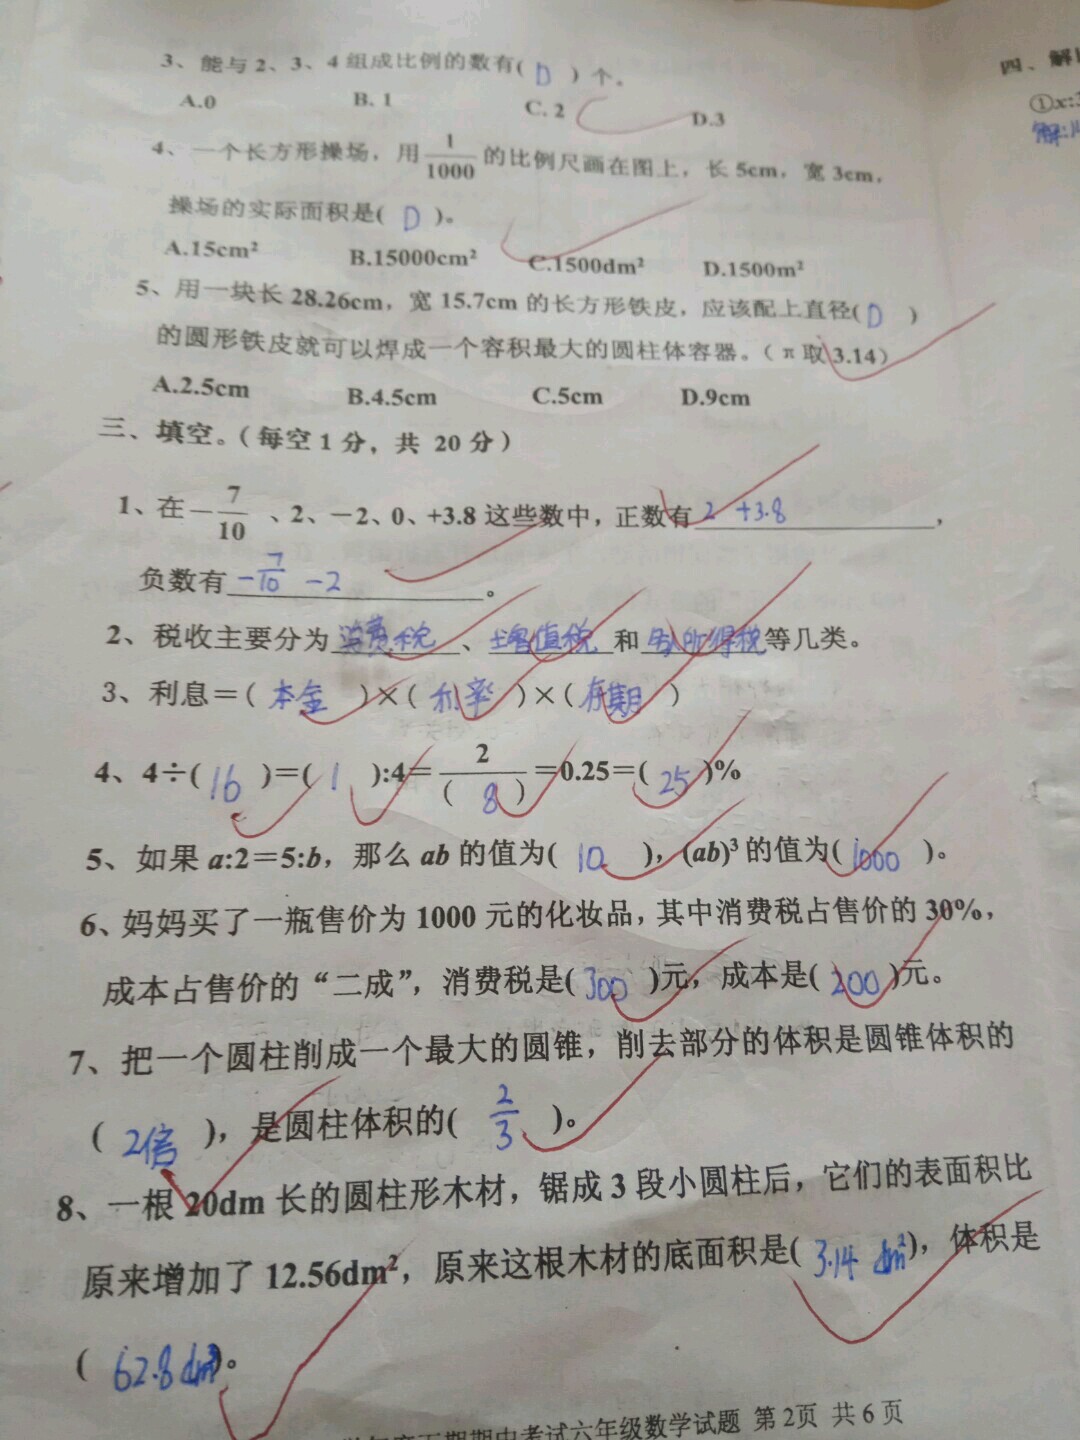 3、能与2、3、4组成比例的数有( D )个。
A.0 B. 1 C. 2 D.3
4、一个长方形操场，用1/1000的比例尺画在图上，长5cm，宽3cm，
操场的实际面积是( D )。
A.15cm² B.15000cm² C.1500dm² D.1500m²
5、用一块长28.26cm，宽15.7cm的长方形铁皮，应该配上直径( D )
的圆形铁皮就可以焊成一个容积最大的圆柱体容器。（π取3.14）
A.2.5cm B.4.5cm C.5cm D.9cm
三、填空。（每空1分，共 20分）
1、在－7/10、2、－2、0、+3.8这些数中，正数有 2 +3.8 ，
负数有 -7/10 -2 。
2、税收主要分为消费税、增值税和个人所得税等几类。
3、利息＝( 本金 )×( 利率 )×( 存期 )
4、4÷( 16 )＝( 1 ):4＝2/( 8 )＝0.25＝( 25 )%
5、如果a:2＝5:b，那么ab的值为( 10 )，(ab)³的值为( 1000 )。
6、妈妈买了一瓶售价为1000元的化妆品，其中消费税占售价的30%，
成本占售价的“二成”，消费税是( 300 )元，成本是( 200 )元。
7、把一个圆柱削成一个最大的圆锥，削去部分的体积是圆锥体积的
( 2倍 )，是圆柱体积的( 2/3 )。
8、一根20dm长的圆柱形木材，锯成3段小圆柱后，它们的表面积比
原来增加了12.56dm²，原来这根木材的底面积是( 3.14 dm² )，体积是
( 62.8dm³ )。
期中考试六年级数学试题 第2页 共6页
四、解
①x:
解: